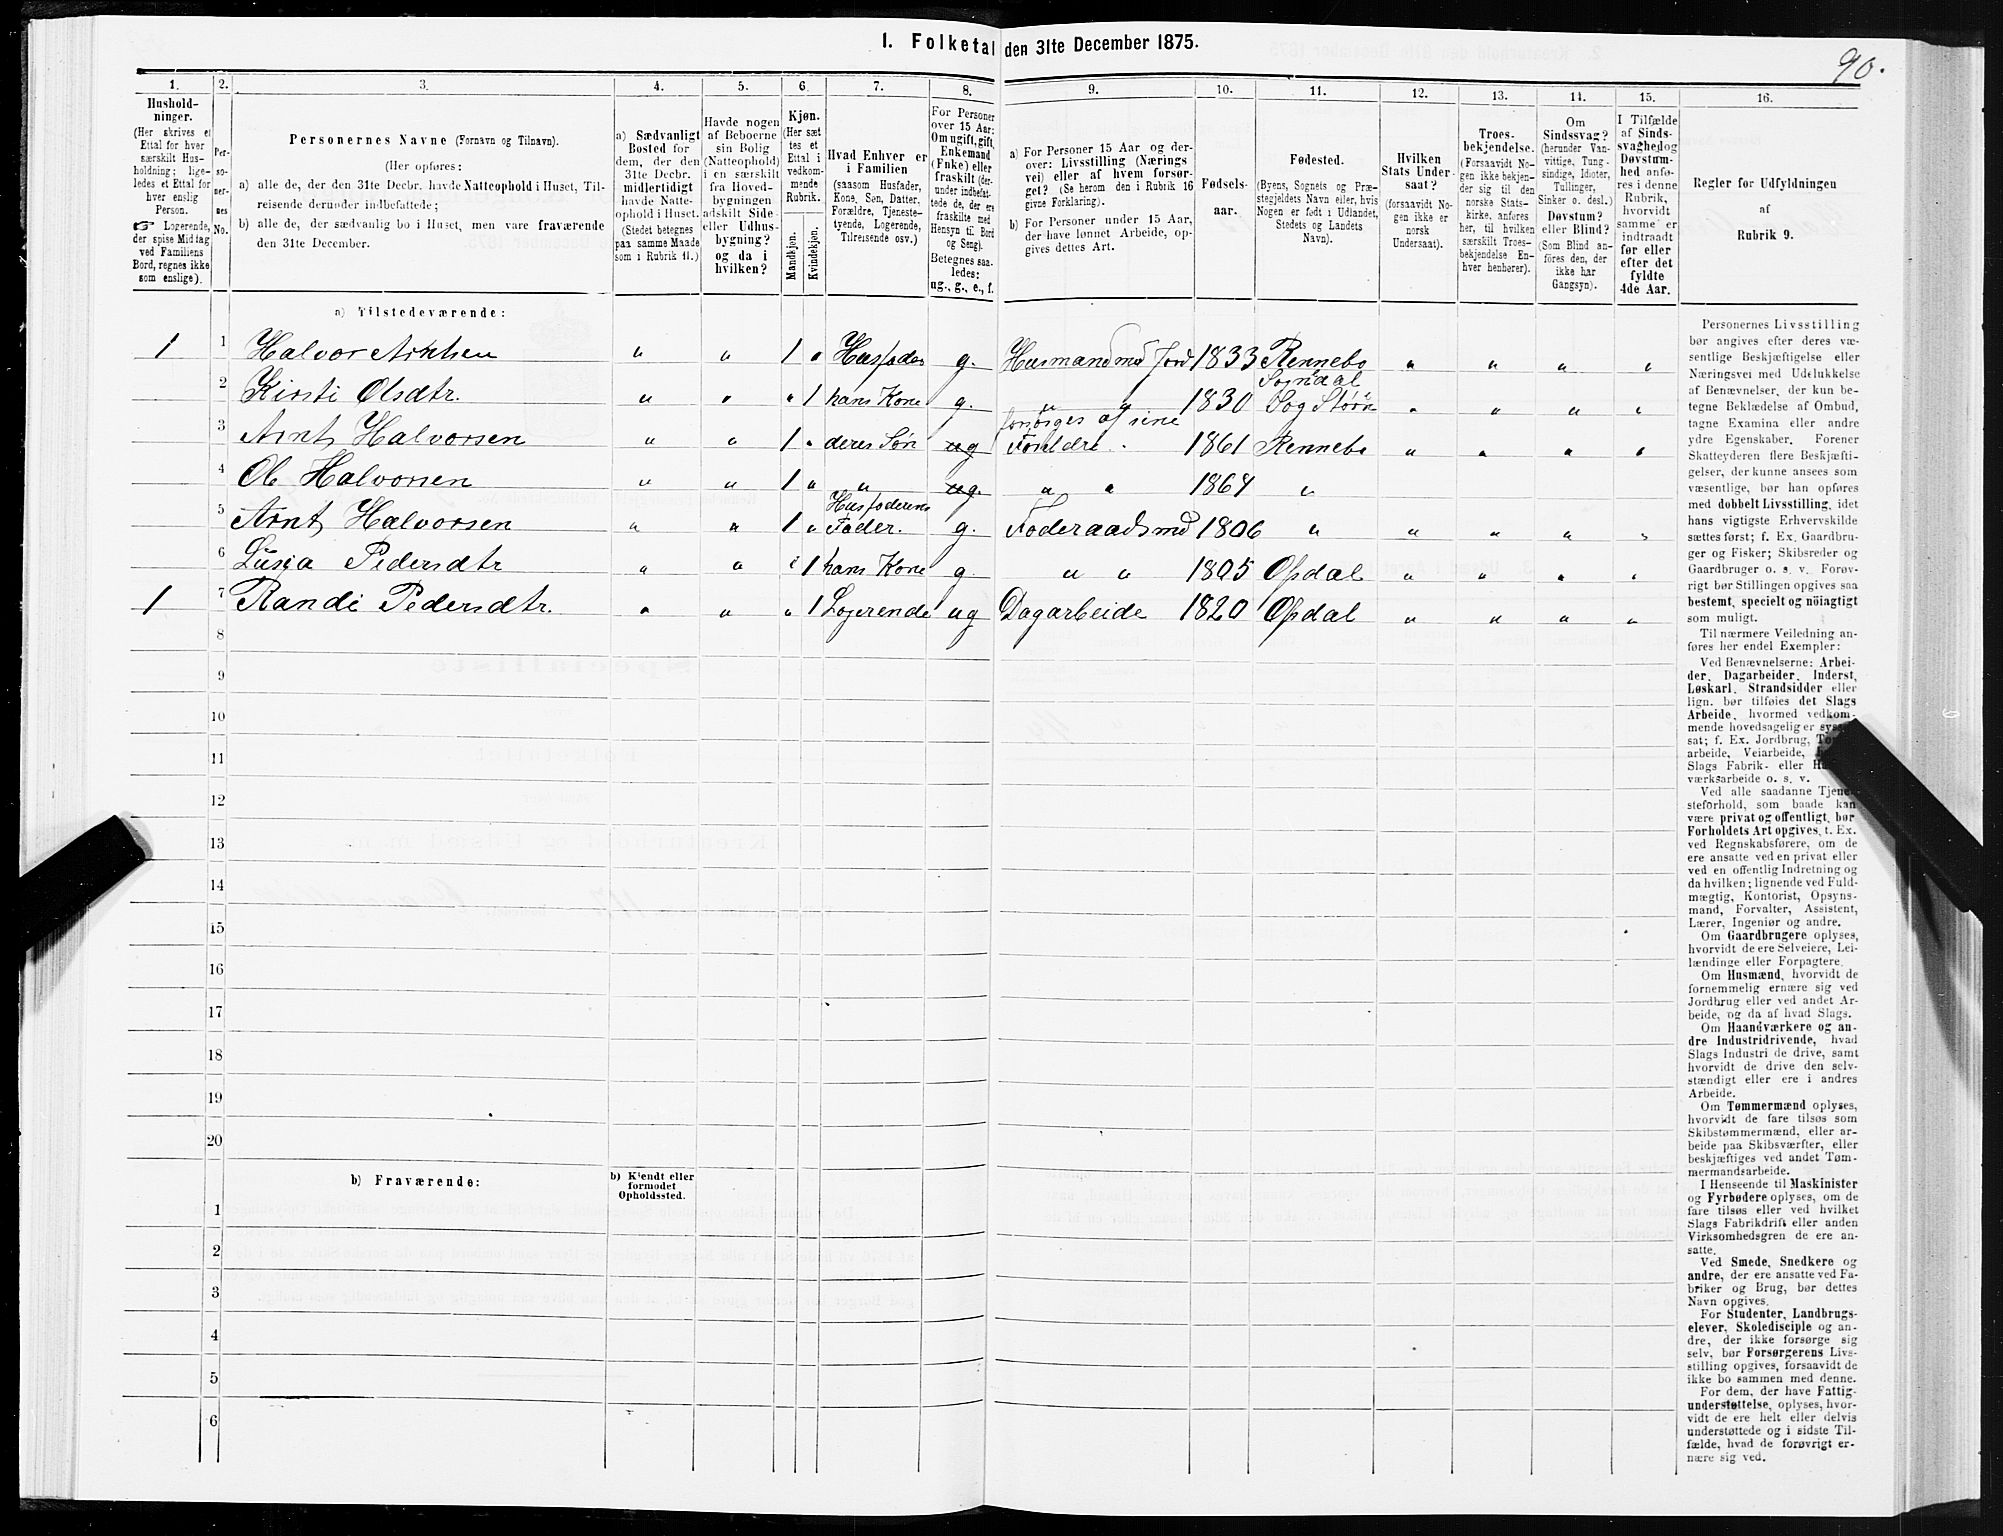 I. Folketal den 31te December 1875.
90.
1.
Hushold-
ninger.
(Her skrives et
Ettal for hver
særskilt Hus-
holdning; lige-
ledes et Ettal for
hver enslig
Person.
☞ Logerende,
der spise Middag
ved Familiens
Bord, regnes ikke
som enslige).
2.
Per-
so-
ner-
nes
No.
3.
Personernes Navne (Fornavn og Tilnavn).
(Her opføres:
a) alle de, der den 31te Decbr. havde Natteophold i Huset, Til-
reisende derunder indbefattede;
b) alle de, der sædvanlig bo i Huset, men vare fraværende
den 31te December.
4.
a) Sædvanligt
Bosted for
dem, der den
31te Decbr.
midlertidigt
havde Natte-
ophold i Huset.
(Stedet betegnes
paa samme Maade
som i Rubrik 11.)
5.
Havde nogen
af Beboerne
sin Bolig
(Natteophold)
i en særskilt
fra Hoved-
bygningen
adskilt Side-
eller Udhus-
bygning?
og da i
hvilken?
6.
Kjøn.
(Her sæt-
tes et
Ettal i
vedkom-
mende
Rubrik.
Mandkjøn.
Kvindekjøn.
7.
Hvad Enhver er
i Familien
(saasom Husfader,
Kone, Søn, Datter,
Forældre, Tjeneste-
tyende, Logerende,
Tilreisende osv.)
8.
For Personer
over 15 Aar:
Om ugift, gift,
Enkemand
(Enke) eller
fraskilt (der-
under indbefat-
tede de, der ere
fraskilte med
Hensyn til Bord
og Seng).
Betegnes saa-
ledes:
ug., g., e., f.
9.
a) For Personer 15 Aar og der-
over: Livsstilling (Nærings-
vei) eller af hvem forsør-
get? (Se herom den i Rubrik 16
givne Forklaring).
b) For Personer under 15 Aar,
der have lønnet Arbeide, op-
gives dettes Art.
10.
Fødsels-
aar.
11.
Fødested.
(Byens, Sognets og Præ-
stegjeldets Navn eller, hvis
Nogen er født i Udlandet,
Stedets og Landets
Navn).
12.
Hvilken
Stats Under-
saat?
(forsaavidt No-
gen ikke er
norsk
Undersaat).
13.
Troes-
bekjendelse.
(Forsaavidt No-
gen ikke bekjen-
der sig til den
norske Stats-
kirke, anføres
her, til hvilken
særskilt Troes-
bekjendelse En-
hver henhører).
14.
Om
Sindssvag?
(herunder Van-
vittige, Tung-
sindige, Idioter,
Tullinger,
Sinker o. desl.)
Døvstum?
eller Blind?
(Som Blind an-
føres den, der
ikke har
Gangsyn).
15.
I Tilfælde
af Sinds-
svaghed og
Døvstum-
hed anfø-
res i denne
Rubrik,
hvorvidt
samme er
indtraadt
før eller
efter det
fyldte
4de Aar.
16.
Regler for Udfyldningen
af
Rubrik 9.
a) Tilstedeværende:
1 1 Halvor Arntsen " " 1 " Husfader g. Husmand md Jord 1833 Rennebo " " " "
2 Kirsti Olsdtr. " " " 1 hans Kone g. " " 1830 Sogndal Sog Støren " " " "
3 Arnt Halvorsen " " 1 " deres Søn ug forsørges af sine Forældre. 1861 Rennebo " " " "
4 Ol Halvorsen " " 1 " " ug. " " 1864 "
5 Arnt Halvorsen " " 1 " Husfaderens Fader. g. Føderaadsmd 1806 " " " " "
6 Lusia Pedersdtr " " " 1 hans Kone g. " " 1805 Opdal " " " "
1 7 Randi Pedersdtr. " " " 1 Logerende ug Dagarbeide 1820 Opdal " " " "
8
9
10
11
12
13
14
15
16
17
18
19
20
b) Fraværende:
b) Kjendt eller
formodet
Opholdssted.
1
2
3
4
5
6
Personernes Livsstilling
bør angives efter deres væ-
sentlige Beskjæftigelse eller
Næringsvei med Udelukkelse
af Benævnelser, der kun be-
tegne Beklædelse af Ombud,
tagne Examina eller andre
ydre Egenskaber. Forener
Skatteyderen flere Beskjæfti-
gelser, der kunne ansees som
væsentlige, bør han opføres
med dobbelt Livsstilling, idet
hans vigtigste Erhvervskilde
sættes først; f. Ex. Gaardbru-
ger og Fisker; Skibsreder og
Gaardbruger o. s. v. Forøv-
rigt bør Stillingen opgives saa
bestemt, specielt og nöiagtigt
som muligt.
Til nærmere Veiledning an-
føres her endel Exempler:
Ved Benævnelserne: Arbei-
der, Dagarbeider, Inderst,
Løskarl, Strandsidder eller
lign. bør tilføies det Slags
Arbeide, hvormed vedkom-
mende hovedsagelig er syssel-
sat; f. Ex. Jordbrug, Tom
arbeide, Veiarbeide,
Slags Fabrik- eller Ha
værksarbeide o. s. v.
Ved alle saadanne Tjene-
steforhold, som baade kan
være privat og offentligt, bør
Forholdets Art opgives, t. Ex.
ved Regnskabsførere, om de
ere ansatte ved en privat eller
ved en offentlig Indretning og
da hvilken; lignende ved Fuld-
mægtig, Kontorist, Opsyns-
mand, Forvalter, Assistent,
Lærer, Ingeniør og andre.
Om Gaardbrugere oplyses,
hvorvidt de ere Selveiere, Lei-
lændinge eller Forpagtere.
Om Husmænd, hvorvidt de
fornemmelig ernære sig ved
Jordbrug eller ved andet Ar-
beide, og da af hvad Slags.
Om Haandværkere og an-
dre Industridrivende, hvad
Slags Industri de drive, samt
hvorvidt de drive den selv-
stændigt eller ere i andres
Arbeide.
Om Tømmermænd oplyses,
hvorvidt de fare tilsøs som
Skibstømmermænd, eller ar-
beide paa Skibsværfter, eller
beskjæftiges ved andet Tøm-
mermandsarbeide.
I Henseende til Maskinister
og Fyrbødere oplyses, om de
fare tilsøs eller ved hvilket
Slags Fabrikdrift eller anden
Virksomhedsgren de ere an-
satte.
Ved Smede, Snedkere og
andre, der ere ansatte ved Fa-
briker og Brug, bør dettes
Navn opgives.
For Studenter, Landbrugs-
elever, Skoledisciple og an-
dre, der ikke forsørge sig
selv, bør Forsørgerens Livs-
stilling opgives, forsaavidt de
ikke bo sammen med denne.
For dem, der have Fattig-
understøttelse, oplyses, hvor-
vidt de ere helt eller delvis
understøttede og i sidste Til-
fælde, hvad de forøvrigt er-
nære sig ved.